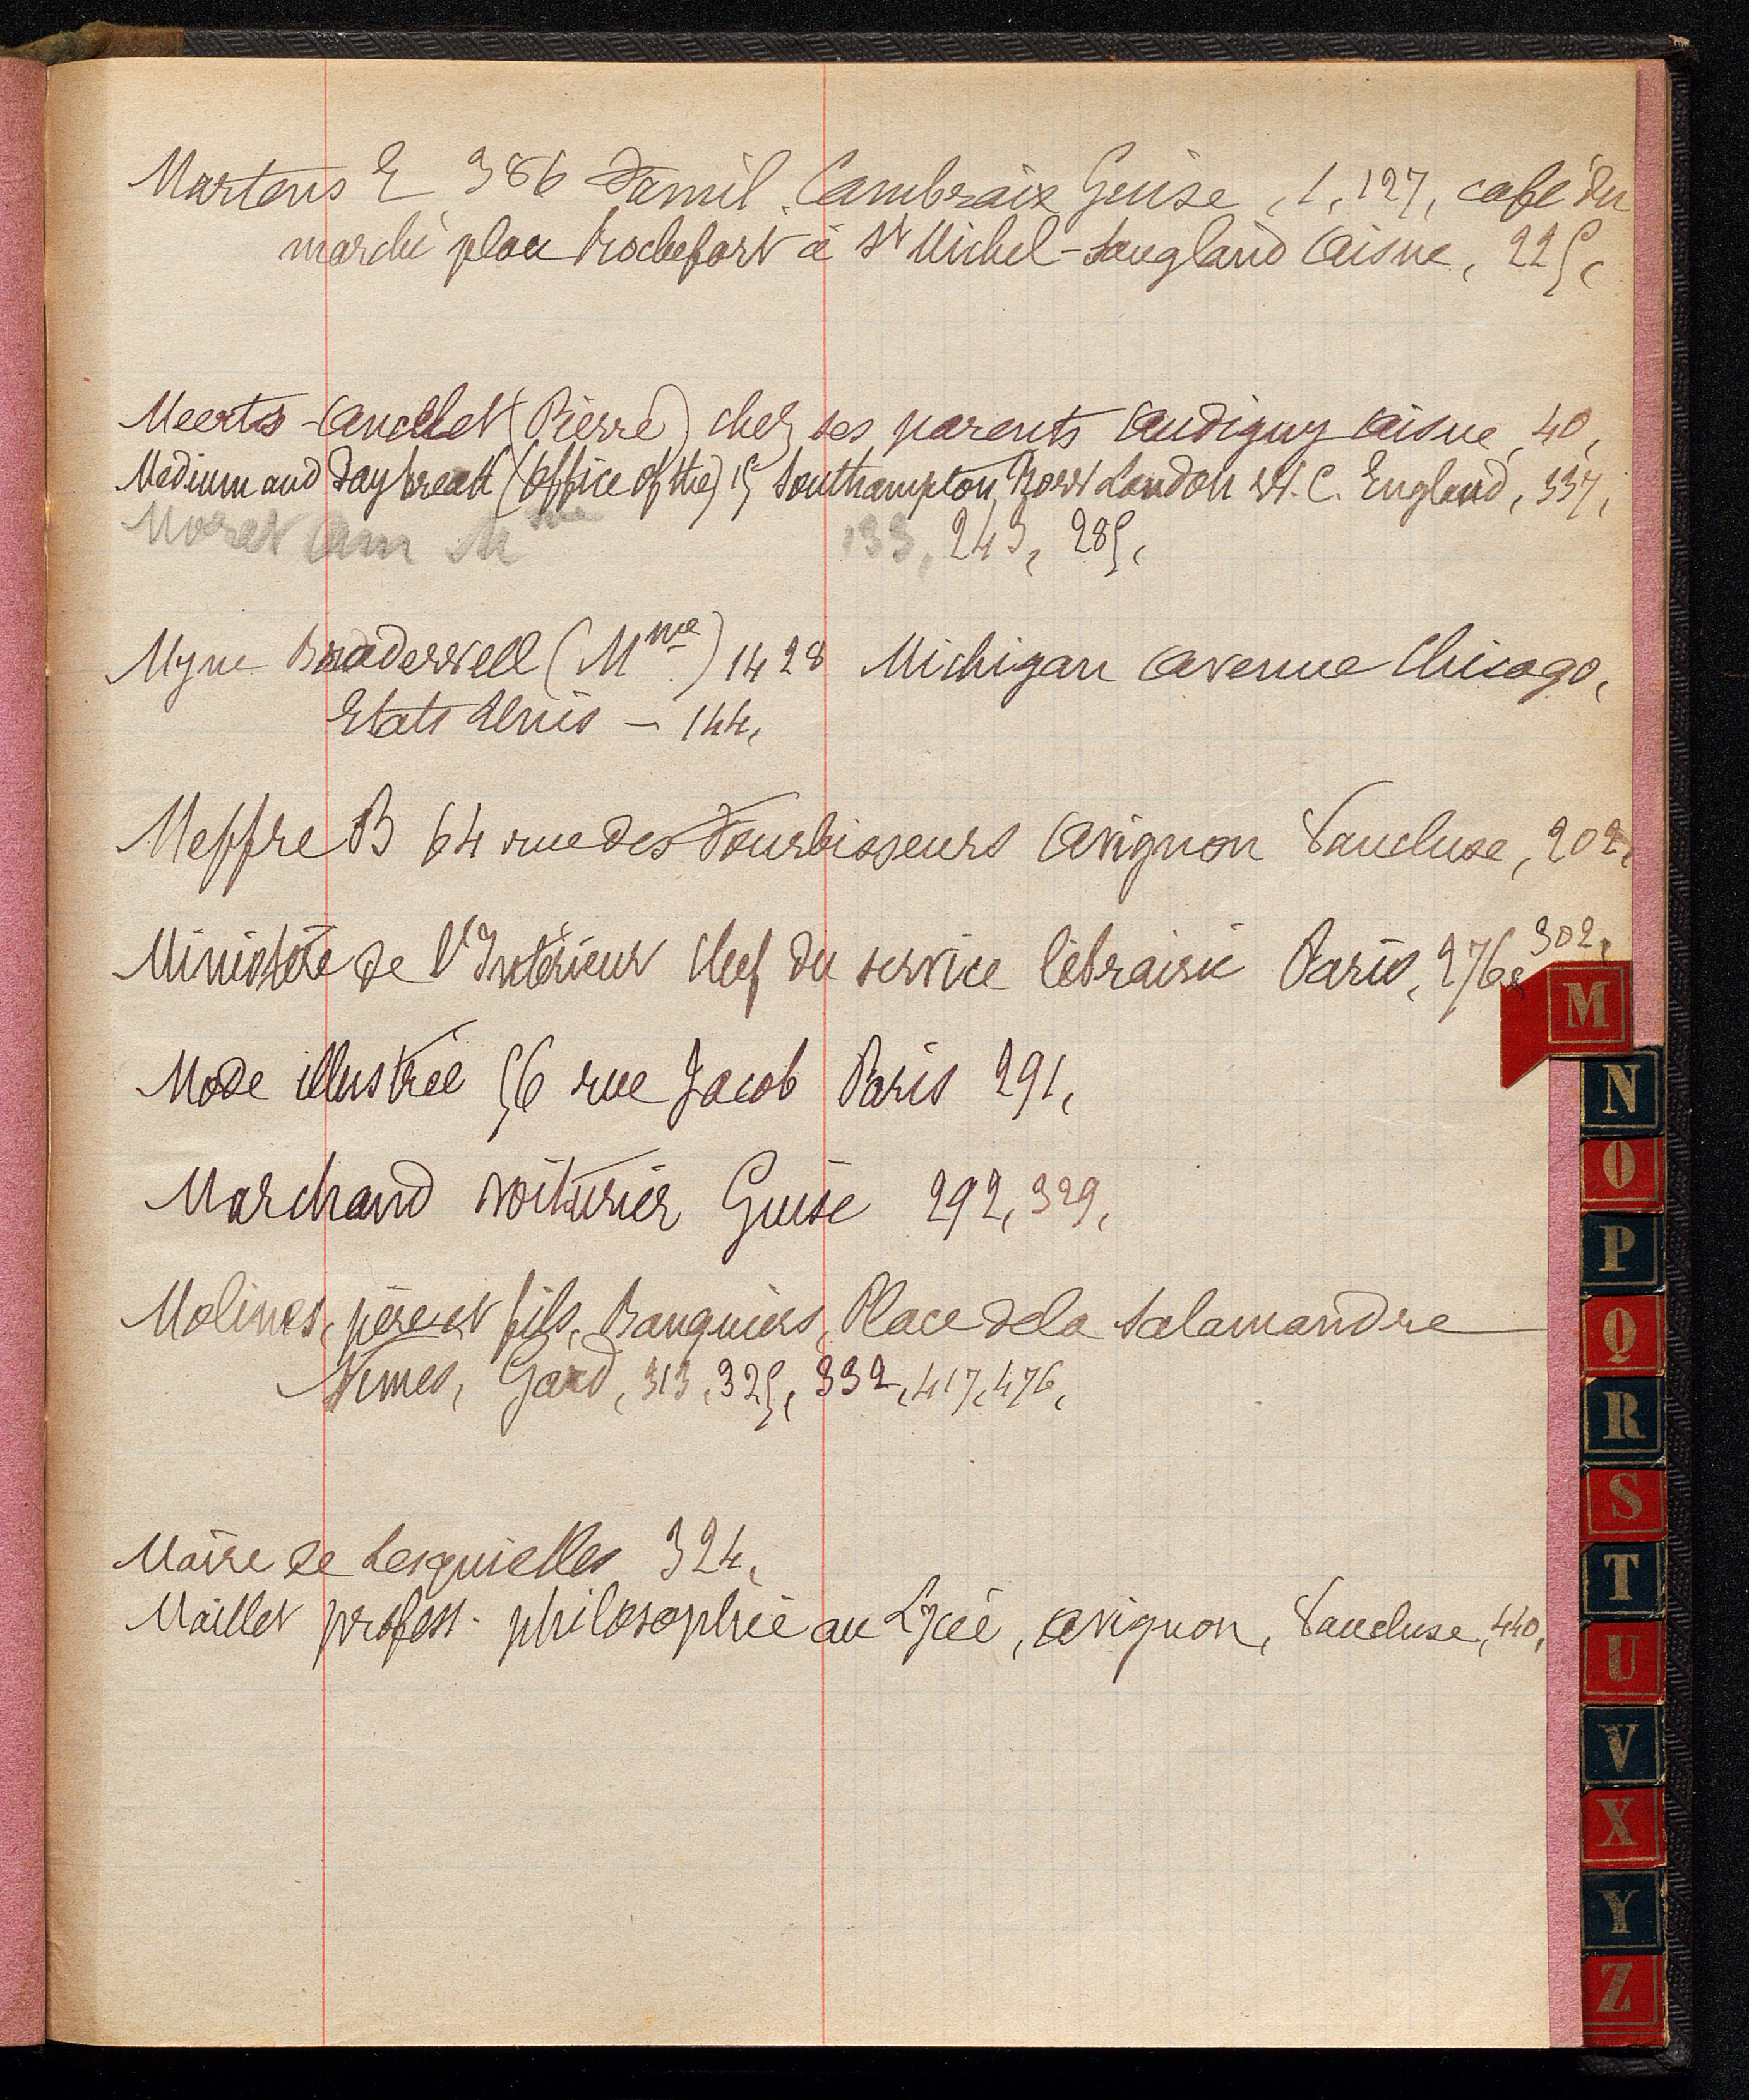 Martens E 386 Famil. Cambraix Guise, 1, 127, café du
marché place Rochefort à St Michel-Sougland Aisne, 225,
Meerts-Anchet (Pierre) chez ses parents Audigny Aisne, 40,
Medium and Daybreak (office of the) 15 Southampton Row London W. C. England, 337,
Moret Am Mme 133, 243, 285,
Myne (Mme) 1428 Michigan avenue Chicago,
Etats Unis – 144,
Meffre B 64 rue des Fourbisseurs Avignon Vaucluse, 202,
Ministère de l'Intérieur Chef du service librairie Paris, 276, 302,
Mode illustrée 56 rue Jacob Paris 291,
Marchand voiturier Guise 292, 329,
Molines, père et fils, Banquiers, Place de la Salamandre
Nimes, Gard, 313, 325, 332, 417, 476,
Maire de Lesquielles 324,
Maillet profess. philosophie au Lycée, Avignon, Vaucluse, 440,
M
N
O
P
Q
R
S
T
U
V
X
Y
Z